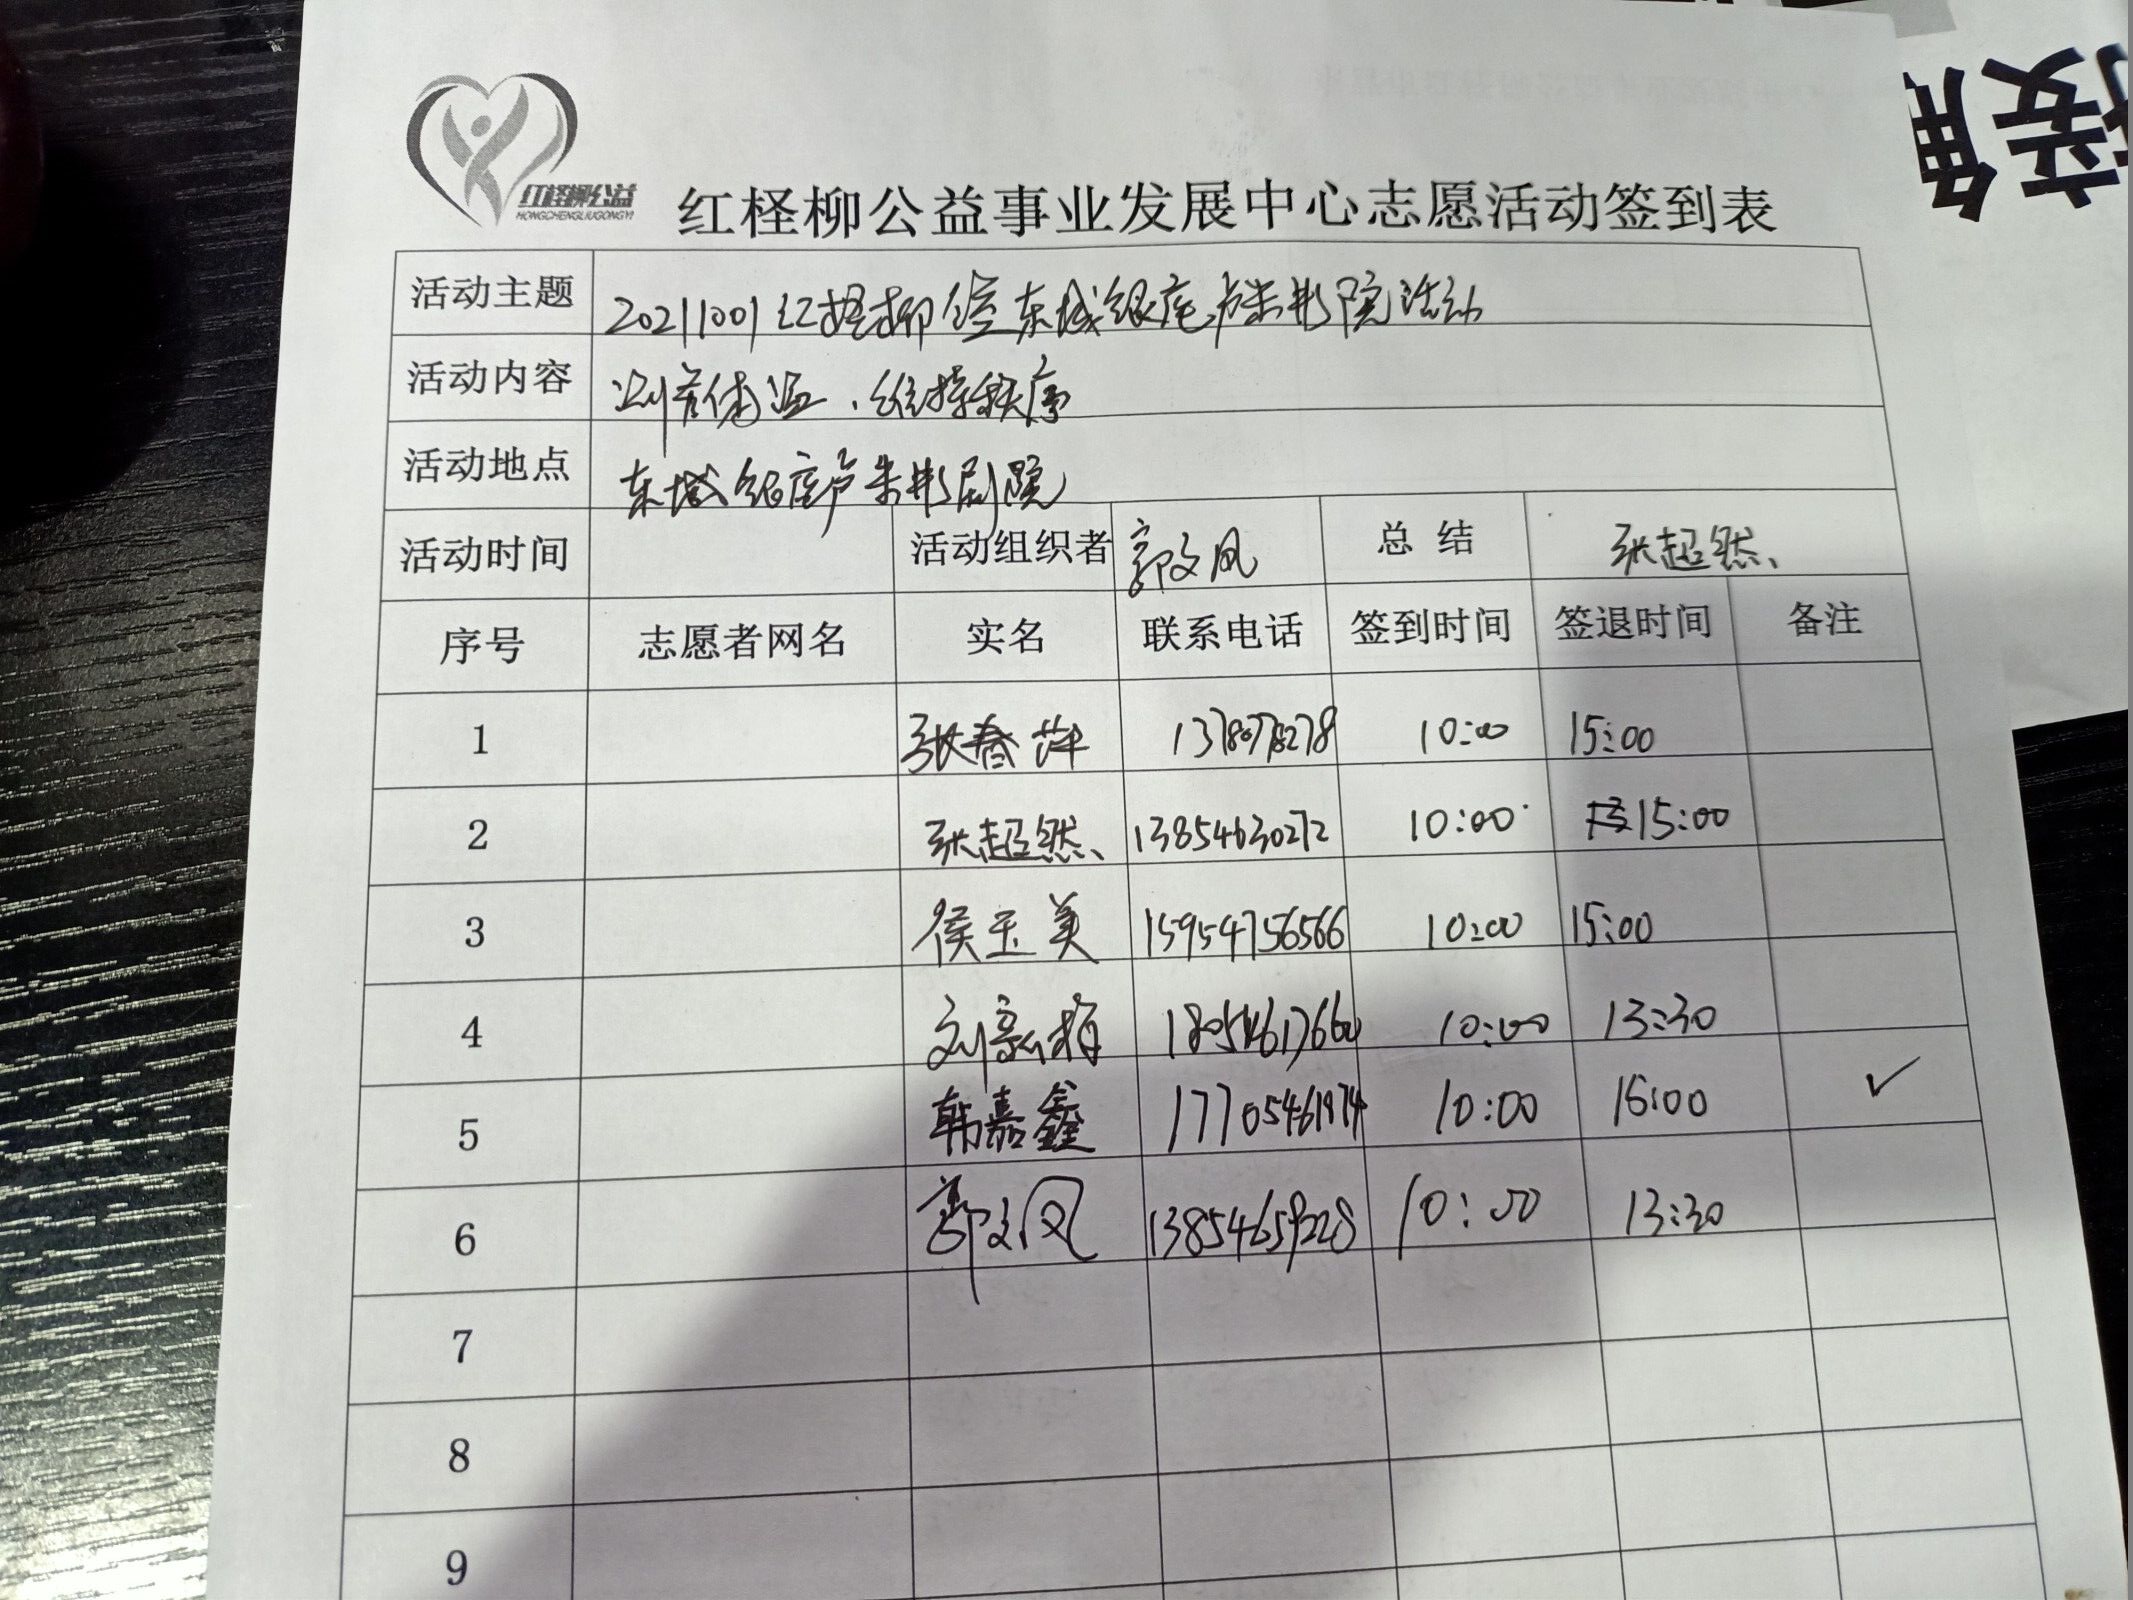 红柽柳公益
HONGCHENGLIUGONGYI
红柽柳公益事业发展中心志愿活动签到表
活动主题 20211001红柽柳 东城银座卢米埃影院活动
活动内容 测量体温、维持秩序
活动地点 东城银座卢米埃影院
活动时间 活动组织者 郭文凤 总 结 张超然
序号 志愿者网名 实名 联系电话 签到时间 签退时间 备注
1 张春萍 10:00 15:00
2 张超然 13854630272 10:00 15:00
3 侯玉美 15954756566 10:00 15:00
4 10:00 13:30
5 韩嘉鑫 17705461974 10:00 15:00 ✓
6 郭文凤 13854659228 10:00 13:30
7
8
9